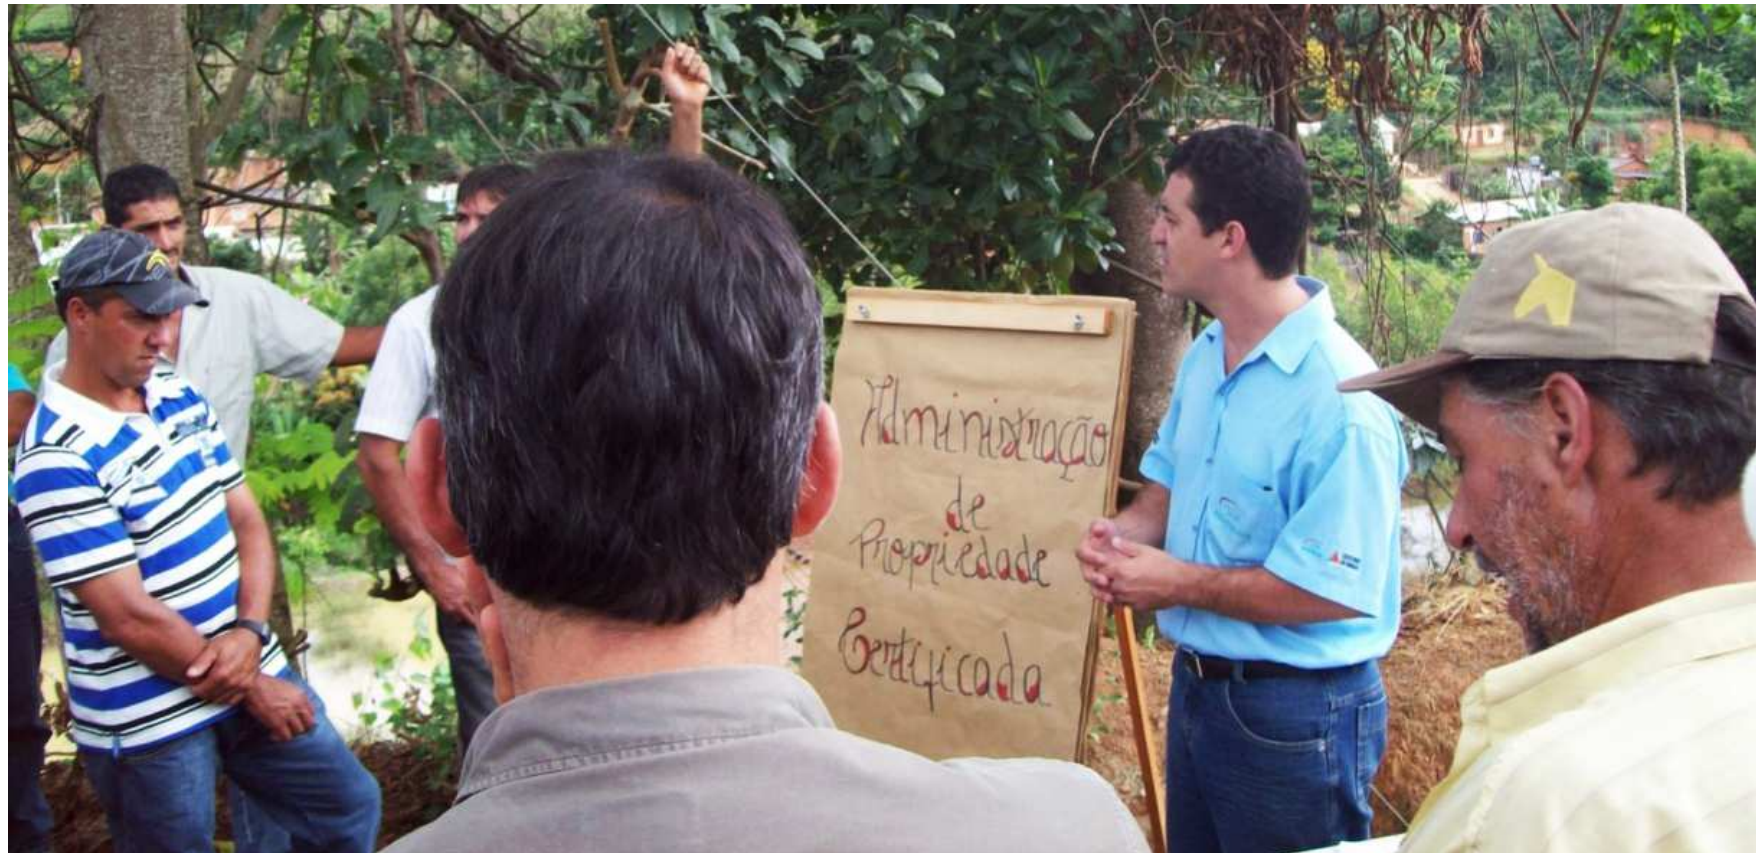 Administração
de
Propriedade
Certificada